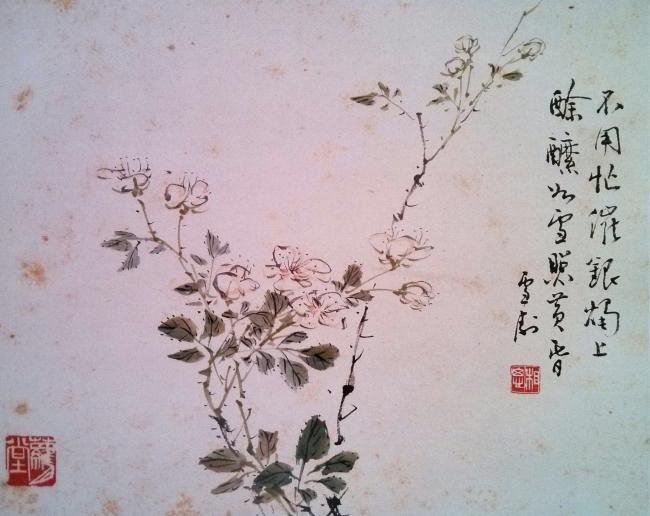 不用忙催銀燭上
酴醿如雪照黃昏
雪

堂